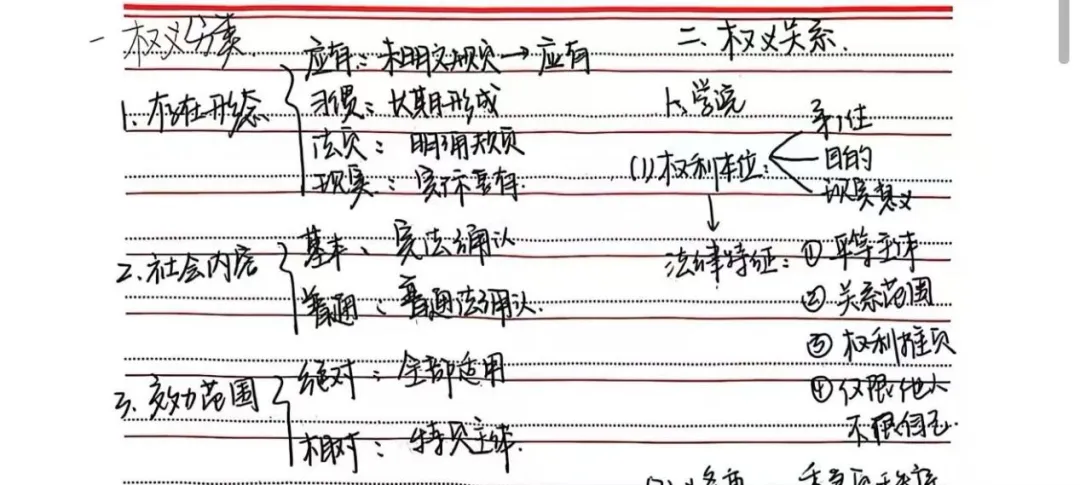 一 权义分类
1. 存在形态
应有：未明文规定→应有
习惯：长期形成
法定：明确规定
现实：实际享有.
2. 社会内容
基本、宪法确认
普通、普通法确认.
3. 效力范围
绝对：全部适用
相对：特定主体.
二、权义关系.
1、学说
(1) 权利本位：
第1位
目的
现实意义
法律特征：① 平等主体
② 关系范围
③ 权利推定
④ 仅限他人
不限自己.